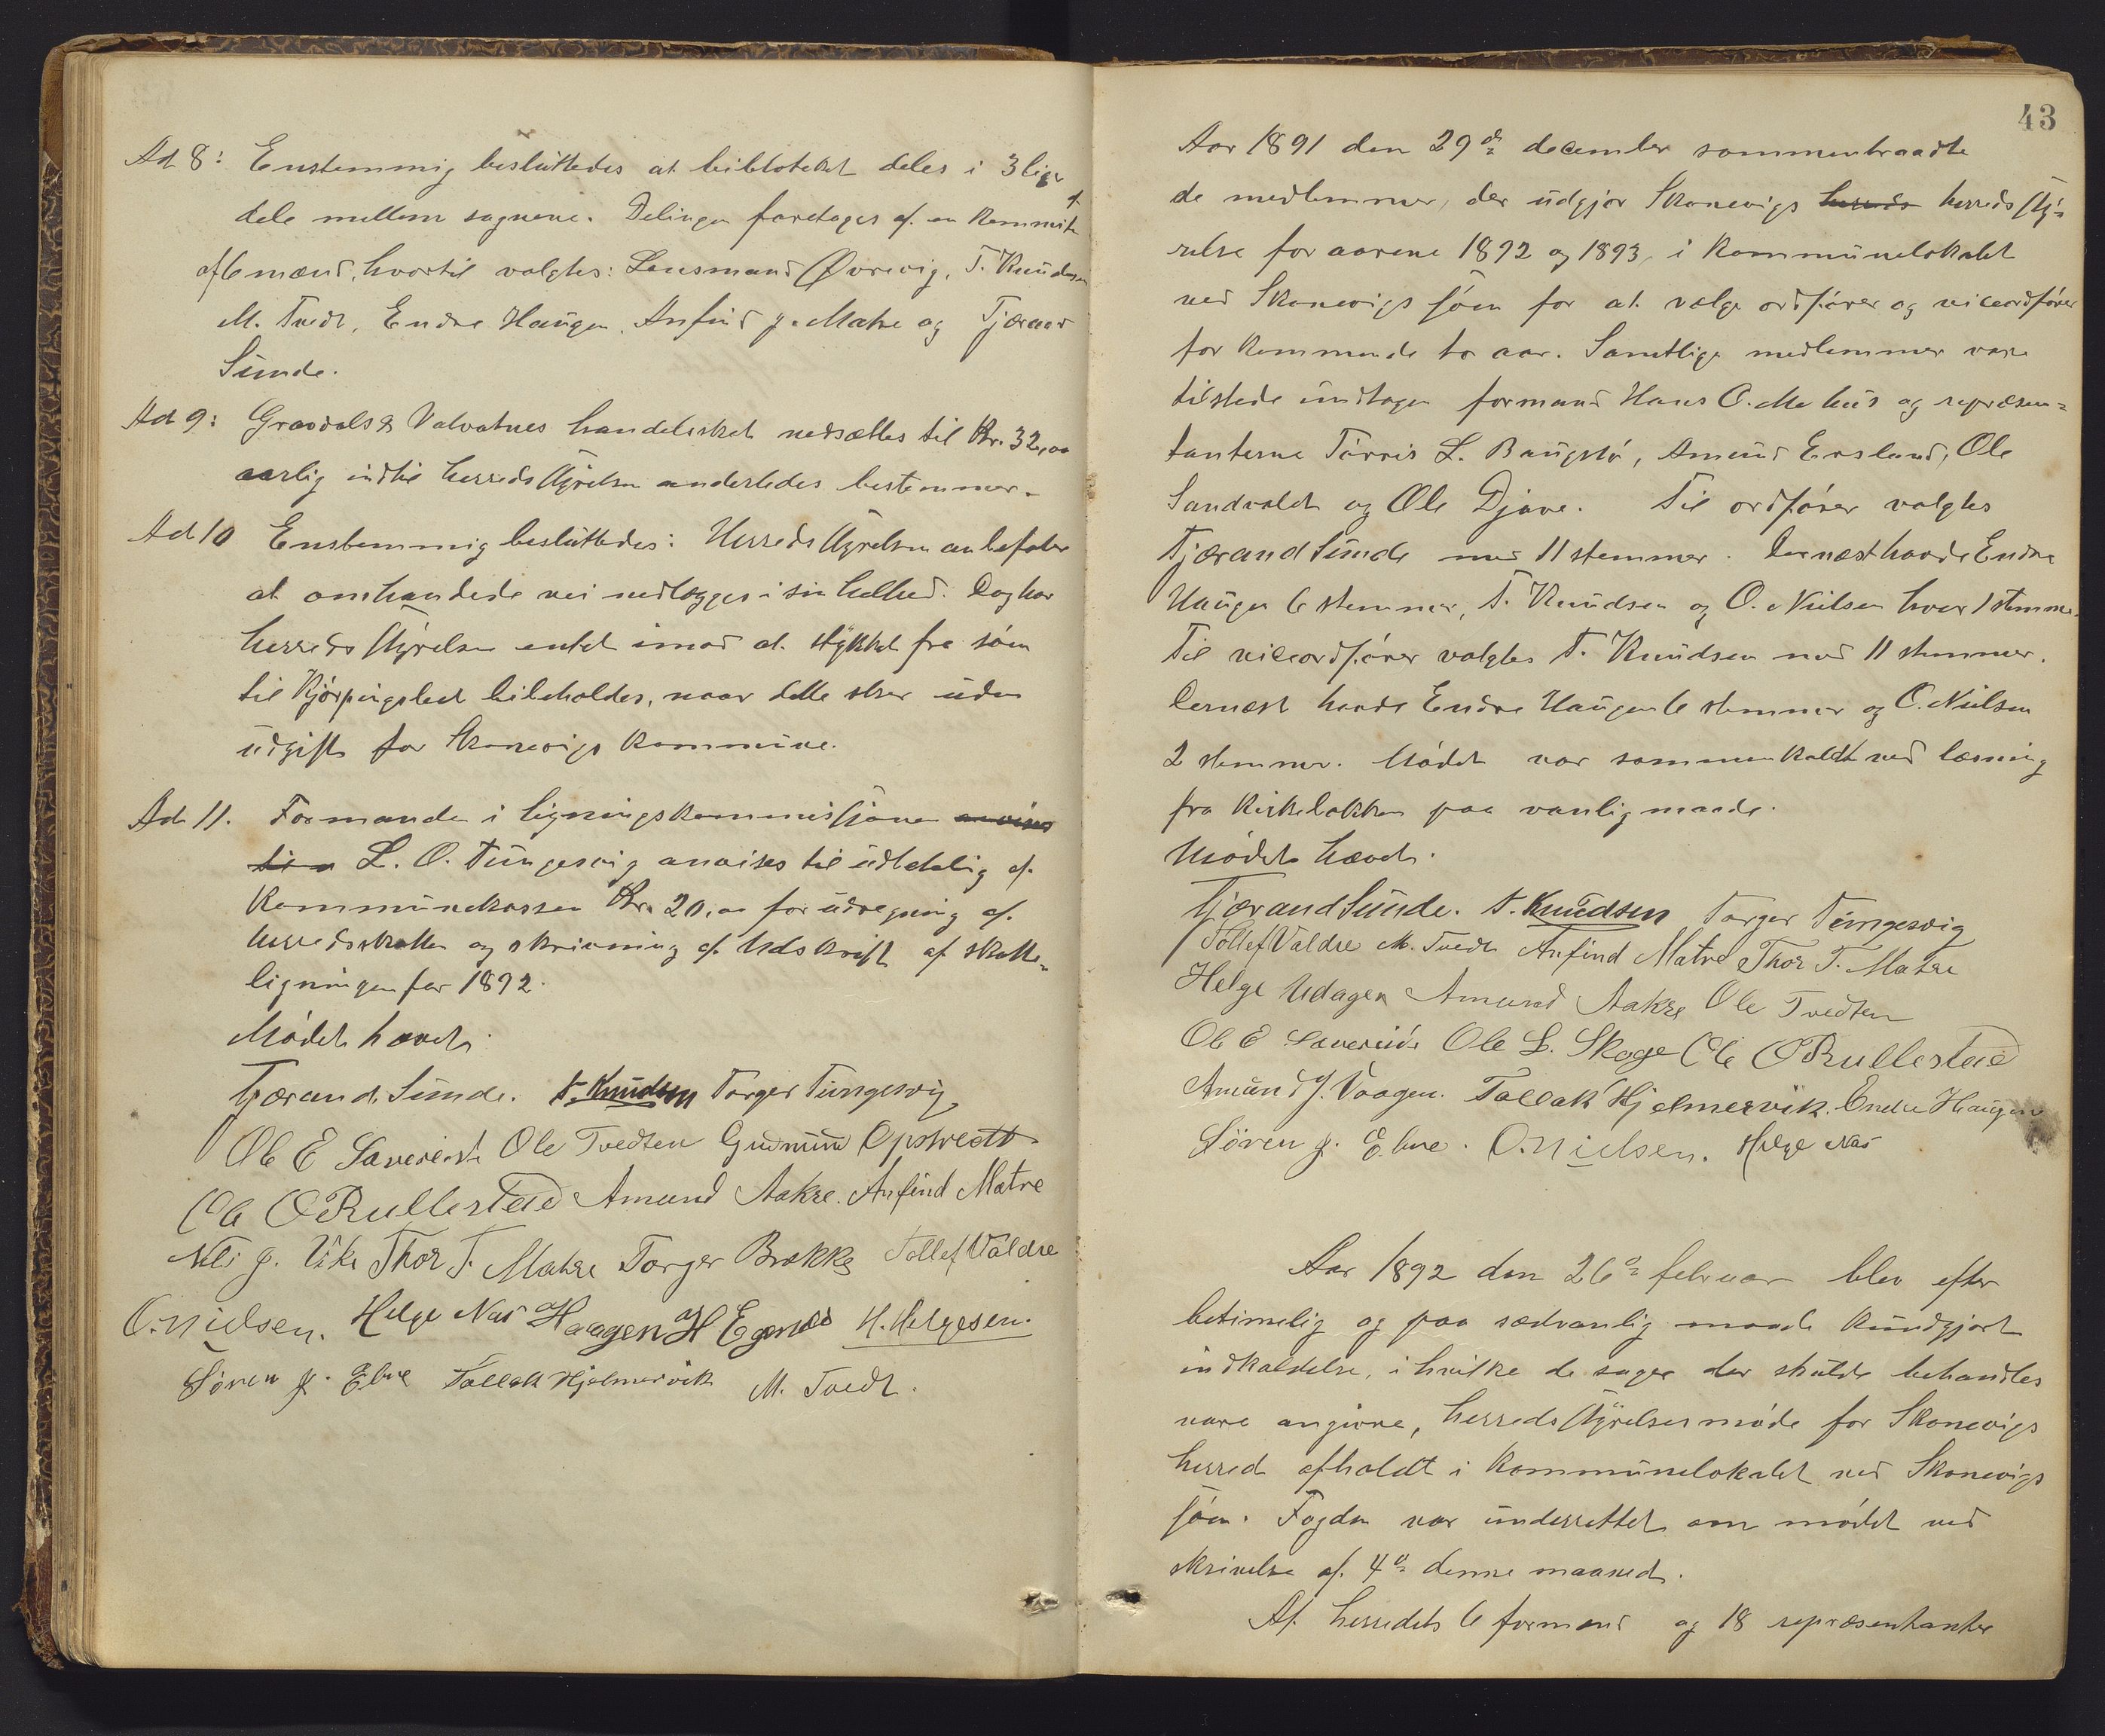 Ad 8: Enstemmig besluttedes at bibloteket deles i 3 lige
dele mellem sognene. Delingen foretages af en Kommite
af 6 mænd, hvortil valgtes: Lensmand Øvrevig, T. Knudsen
M. Tvedt, Endre Haugen, Anfind J. Matre og Tjærand
Sunde.
Ad 9: Gravdals & Valvatnes handelsskat nedsættes til Kr. 32,00
aarlig indtil herredsstyrelsen anderledes bestemmer.
Ad 10 Enstemmig besluttedes: Herredsstyrelsen anbefaler
at omhandlede vei nedlægges i sin helhed. Dog har
herredsstyrelsen intet imod at stykket fra søen
til Kjørpingsled bibeholdes, naar dette sker uden
udgift for Skonevigs Kommune.
Ad 11. Formanden i ligningskommissjonen anvises
til L. O. Tungesvig anvises til udbetaling af
Kommunekassen Kr. 20,00 for udregning af
herredsskatten og skrivning af Udskrift af skatte-
ligningen for 1892.
Mødet hævet.
Tjærand Sunde. T. Knudsen Torger Tungesvig
Ole E Savereide Ole Tvedten Gudmund Opstvedt
Ole O Rullestad Amund Aakre. Anfind Matre
Nils J. Vike Thor T. Matre Torger Brekke Tollef Valdre
O. Nielsen. Helge Næs Haagen H Egenæs H. Helgesen.
Søren J. Ebne Tollak Hjelmervik M. Tvedt.
43
Aar 1891 den 29de december sammentraadte
de medlemmer, der udgjør Skonevigs herreds herredssty-
relse for aarene 1892 og 1893, i Kommunelokalet
ved Skonevigs søen for at vælge ordfører og viceordfører
for kommende to aar. Samtlige medlemmer vare
tilstede undtagen formand Hans O. Mehus og repræsen-
tanterne Tørris L. Baugstø, Amund Ersland, Ole
Sandvold og Ole Djøve. Til ordfører valgtes
Tjærand Sunde med 11 stemmer. Dernæst havde Endre
Haugen 6 stemmer, T. Knudsen og O. Nielsen hver 1 stemme.
Til viceordfører valgtes T. Knudsen med 11 stemmer.
Dernæst havde Endre Haugen 6 stemmer og O. Nielsen
2 stemmer. Mødet var sammenkaldt ved læsning
fra Kirkebakken paa vanlig maade.
Mødet hævet.
Tjærand Sunde. T. Knudsen Torger Tungesvig
Tollef Valdre M. Tvedt Anfind Matre Thor T. Matre
Helge Udagen Amund Aakre Ole Tvedten
Ole E Savereide Ole L. Skoge Ole O Rullestad
Amund J. Vaagen. Tollak Hjelmervik. Endre Haugen
Søren J. Ebne. O. Nielsen. Helge Næs
Aar 1892 den 26de februar blev efter
betimelig og paa sædvanlig maade kundgjort
indkaldelse, i hvilke de sager der skulde behandles
vare angivne, herredsstyrelsesmøde for Skonevigs
herred afholdt i Kommunelokalet ved Skonevigs
søen. Fogden var underrettet om mødet ved
skrivelse af 4de denne maaned.
Af herredets 6 formænd og 18 repræsentanter